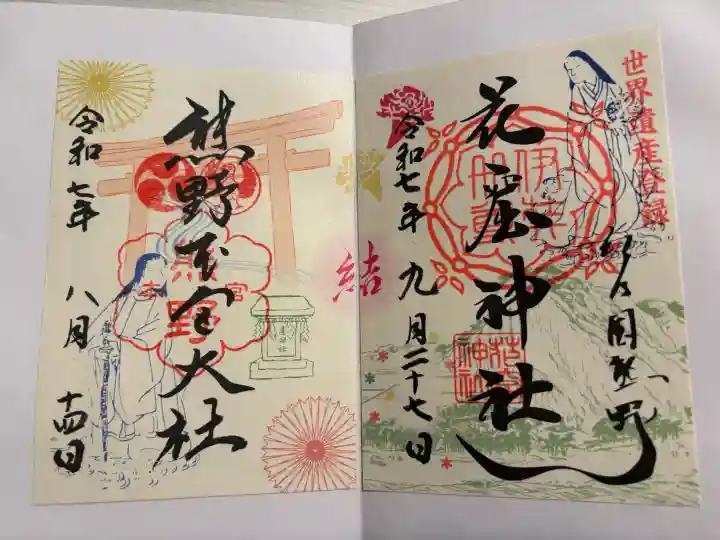 世界遺産登録
花窟神社
令和七年九月二十七日
伊弉冊尊
花窟神社
結
熊野本宮大社
令和七年八月十四日
熊野
本宮